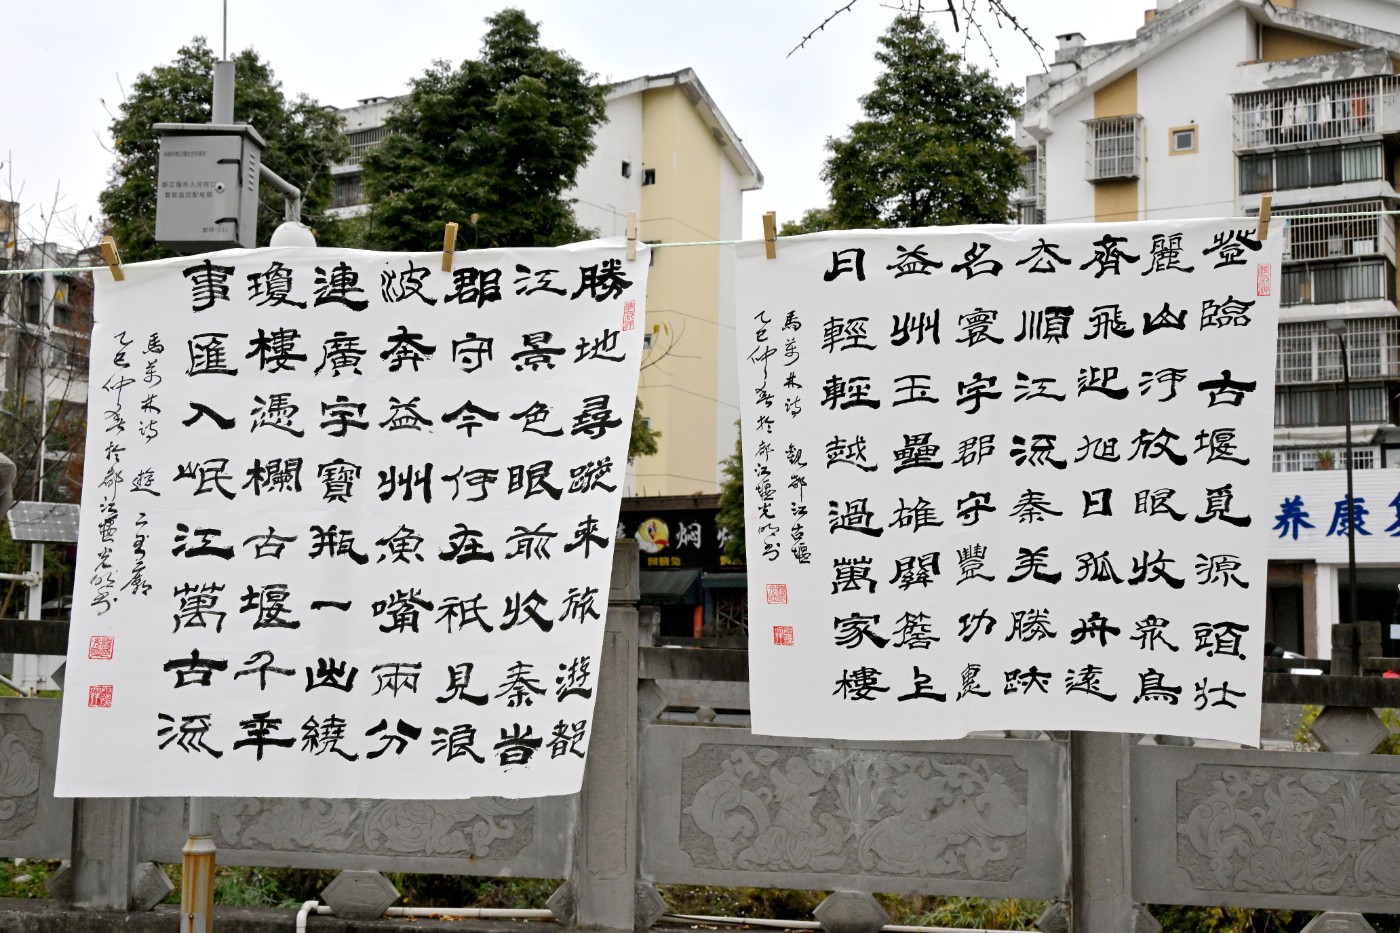 登臨古堰覓源頭壯
麗山河放眼收眾鳥
齊飛迎旭日孤舟遠
去順江流秦羌勝跡
名寰宇郡守豐功惠
益州玉壘雄關簷上
日輕輕越過萬家樓
馬萬林詩 觀都江古堰
乙巳仲春於都江堰光明書
勝地尋蹤來旅遊都
江景色眼前收秦昔
郡守今何在祇見浪
波奔益州魚嘴兩分
連廣宇寶瓶一出繞
瓊樓憑欄古堰千年
事匯入岷江萬古流
馬萬林詩 遊二王廟
乙巳仲春於都江堰光明書
都江堰市入河排口
智能监控配电箱
焖
养康